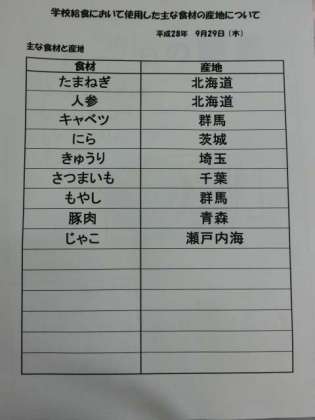 学校給食において使用した主な食材の産地について
平成28年 9月29日（木）
主な食材と産地
食材 産地
たまねぎ 北海道
人参 北海道
キャベツ 群馬
にら 茨城
きゅうり 埼玉
さつまいも 千葉
もやし 群馬
豚肉 青森
じゃこ 瀬戸内海